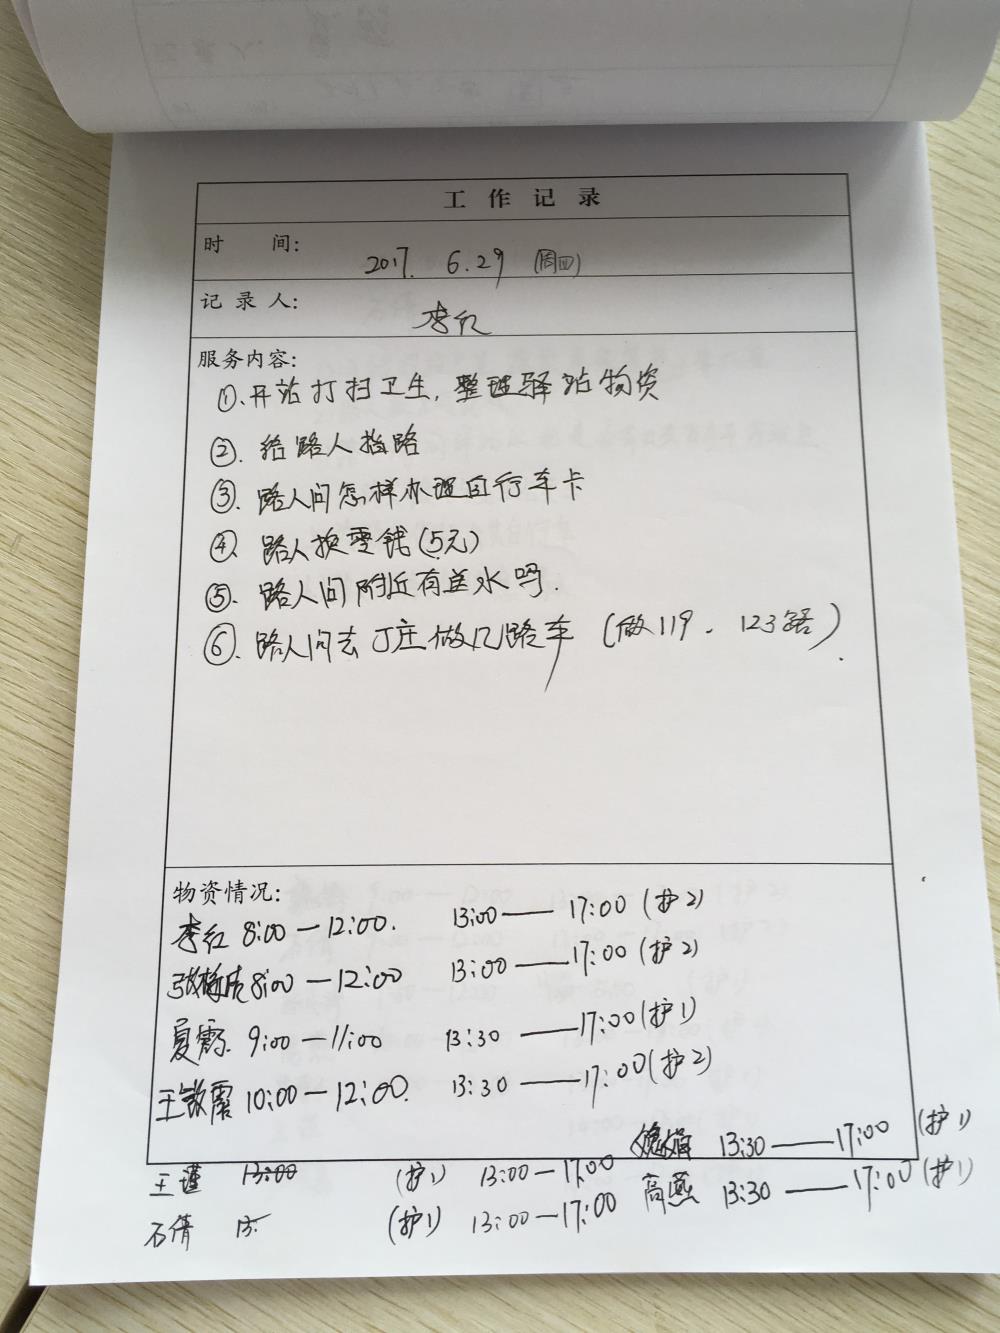 工作记录
时 间: 2017. 6.29 (周四)
记录人: 李红
服务内容:
①.开站打扫卫生, 整理驿站物资
②. 给路人指路
③. 路人问怎样办理自行车卡
④. 路人换零钱(5元)
⑤. 路人问附近有送水吗.
⑥. 路人问去丁庄做几路车 (做119 . 123路).
物资情况:
李红 8:00 — 12:00. 13:00 — 17:00 (护2)
8:00 — 12:00 13:00 — 17:00 (护2)
夏霞 9:00 — 11:00 13:30 — 17:00 (护1)
王敏霞 10:00 — 12:00. 13:30 — 17:00 (护2)
13:30 — 17:00 (护1)
王瑾 13:00 (护1) 13:00 — 17:00
高燕 13:30 — 17:00 (护1)
石倩 13: (护1) 13:00 — 17:00